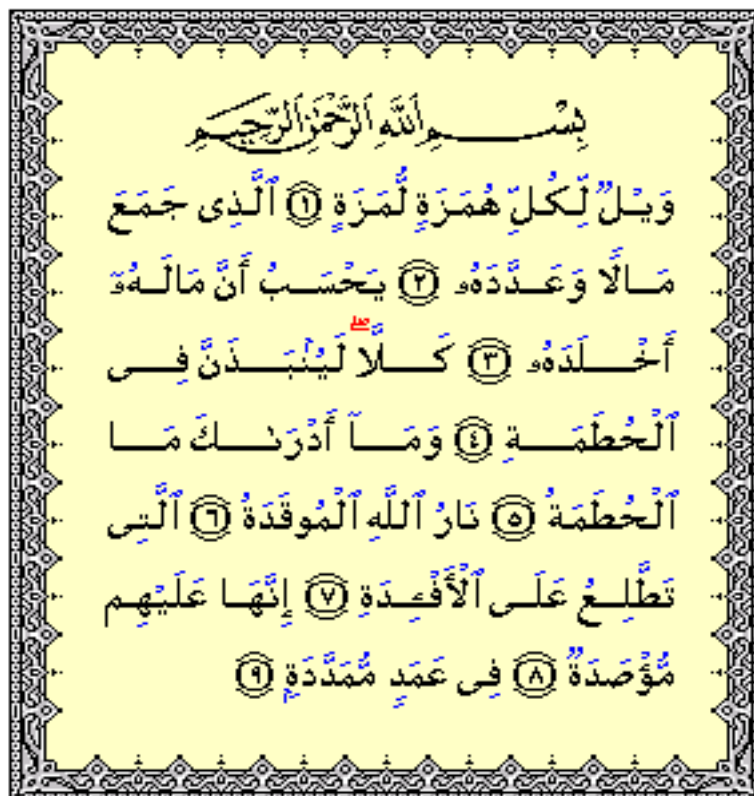 بِسْمِ ٱللَّهِ ٱلرَّحْمَٰنِ ٱلرَّحِيمِ
وَيْلٌ لِّكُلِّ هُمَزَةٍ لُّمَزَةٍ ۝١ ٱلَّذِى جَمَعَ
مَالًا وَعَدَّدَهُۥ ۝٢ يَحْسَبُ أَنَّ مَالَهُۥٓ
أَخْلَدَهُۥ ۝٣ كَلَّا ۖ لَيُنۢبَذَنَّ فِى
ٱلْحُطَمَةِ ۝٤ وَمَآ أَدْرَىٰكَ مَا
ٱلْحُطَمَةُ ۝٥ نَارُ ٱللَّهِ ٱلْمُوقَدَةُ ۝٦ ٱلَّتِى
تَطَّلِعُ عَلَى ٱلْأَفْـِٔدَةِ ۝٧ إِنَّهَا عَلَيْهِم
مُّؤْصَدَةٌ ۝٨ فِى عَمَدٍ مُّمَدَّدَةٍۭ ۝٩